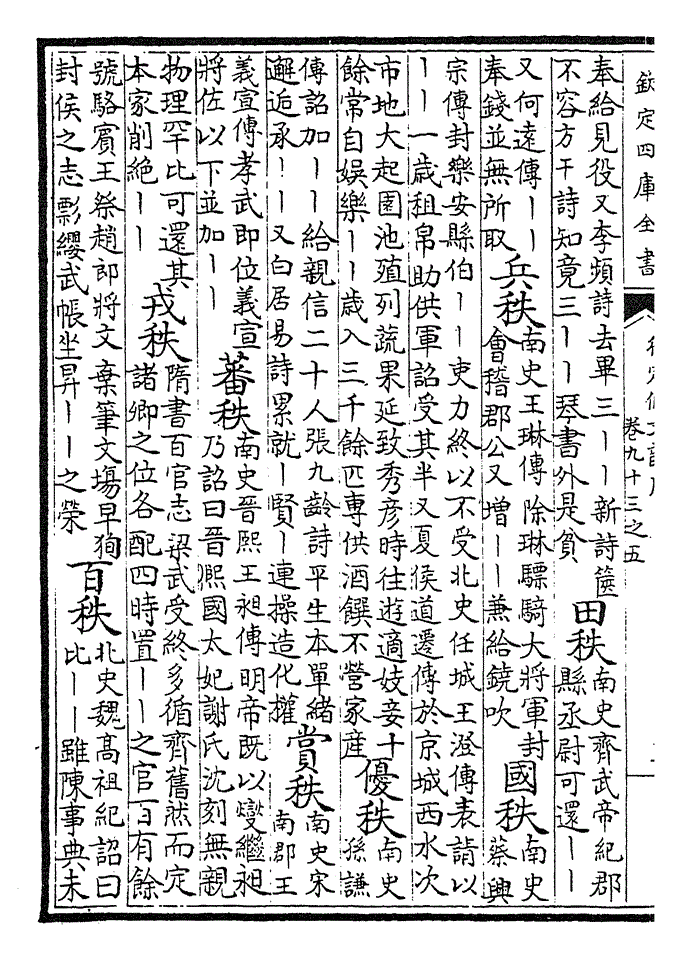 欽定四庫全書
卷九十三之五
奉給見役又李頻詩去畢三丨丨新詩篋
不容方干詩知竟三丨丨琴書外是貧
田秩
南史齊武帝紀郡
縣丞尉可還丨丨
又何遠傳丨丨
奉錢並無所取
兵秩
南史王琳傳除琳驃騎大將軍封
會稽郡公又增丨丨兼給鐃吹
國秩
南史
蔡興
宗傳封樂安縣伯丨丨吏力終以不受北史任城王澄傳表請以
丨丨一歲租帛助供軍詔受其半又夏侯道遷傳於京城西水次
市地大起園池殖列蔬果延致秀彥時往遊適妓妾十
餘常自娛樂丨丨歲入三千餘匹專供酒饌不營家産
優秩
南史
孫謙
傳詔加丨丨給親信二十人張九齡詩平生本單緒
邂逅承丨丨又白居易詩累就丨賢丨連操造化權
賞秩
南史宋
南郡王
義宣傳孝武即位義宣
將佐以下並加丨丨
蕃秩
南史晉熙王昶傳明帝既以燮繼昶
乃詔曰晉熈國太妃謝氏沈刻無親
物理罕比可還其
本家削絶丨丨
戎秩
隋書百官志梁武受終多循齊舊然而定
諸卿之位各配四時置丨丨之官百有餘
號駱賓王祭趙郎將文棄筆文塲早狥
封侯之志影纓武帳坐昇丨丨之榮
百秩
北史魏髙祖紀詔曰
比丨丨雖陳事典未